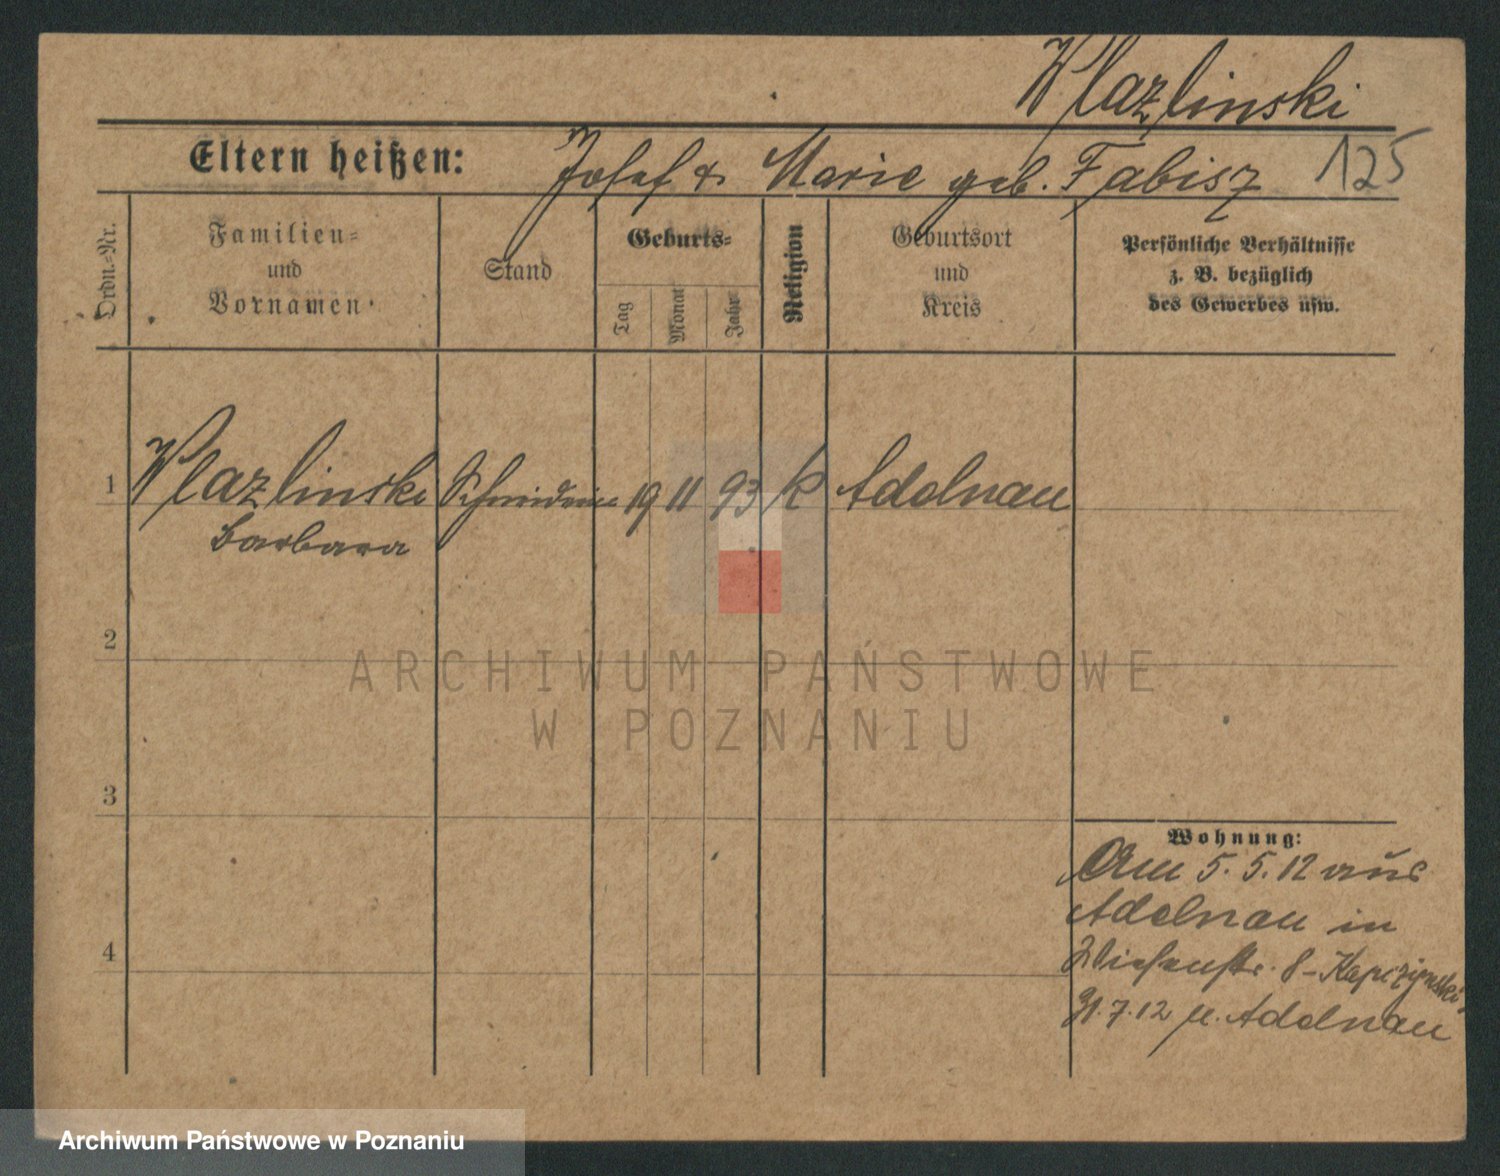 Wlazlinski
Eltern heißen: Josef & Marie geb. Fabisz 125
Ordn.-Nr.
Familien-
und
Vornamen
Stand
Geburts-
Tag
Monat
Jahr
Religion
Geburtsort
und
Kreis
Persönliche Verhältnisse
z. B. bezüglich
des Gewerbes usw.
1 Wlazlinski Schneiderin 19 11 93 k Adelnau
Barbara
2
3
4
Wohnung:
Am 5.5.12 aus
Adelnau in
Wiesenstr. 8 - Kapczynski
31.7.12 n. Adelnau
ARCHIWUM PAŃSTWOWE
W POZNANIU
Archiwum Państwowe w Poznaniu